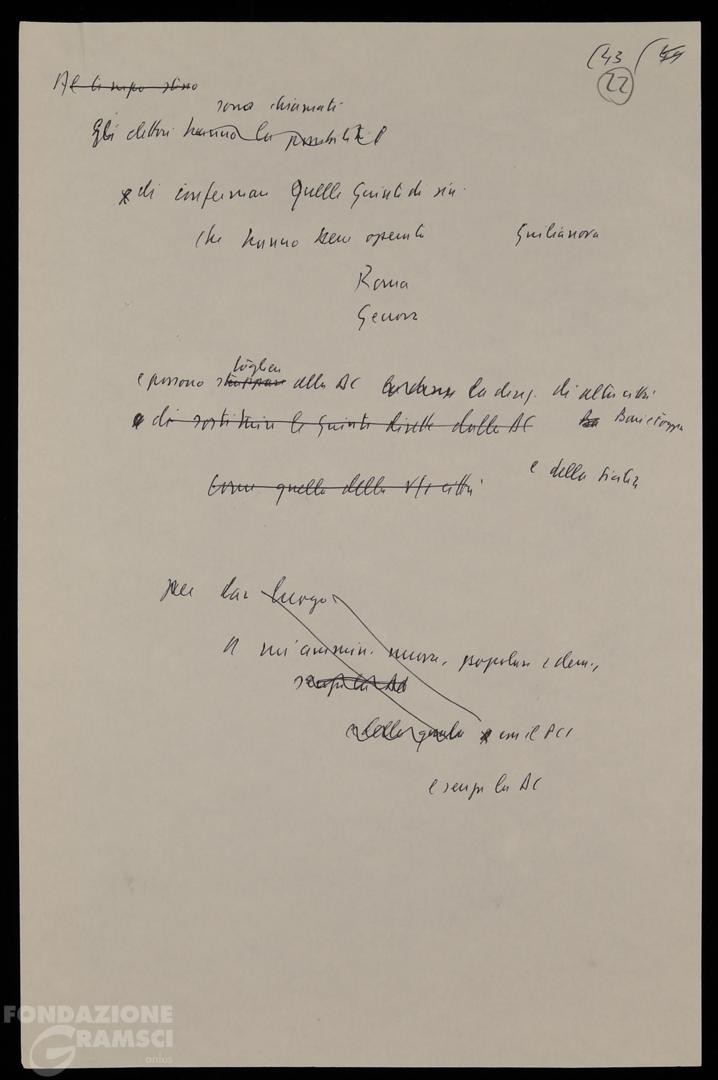 (43 (44
22
Al tempo stesso
sono chiamati
Gli elettori hanno la possibilità
di confermare quelle Giunte di sin.
che hanno ben operato Giulianova
Roma
Genova
togliere
e possono strappare alla DC la direz. di altre città
di sostituire le Giunte dirette dalla DC Bari e Foggia
come quella delle città e della Sicilia
per dar luogo
a ammin. nuove, popolari e dem.,
senza la DC
con il PCI
e senza la DC
FONDAZIONE
GRAMSCI
onlus